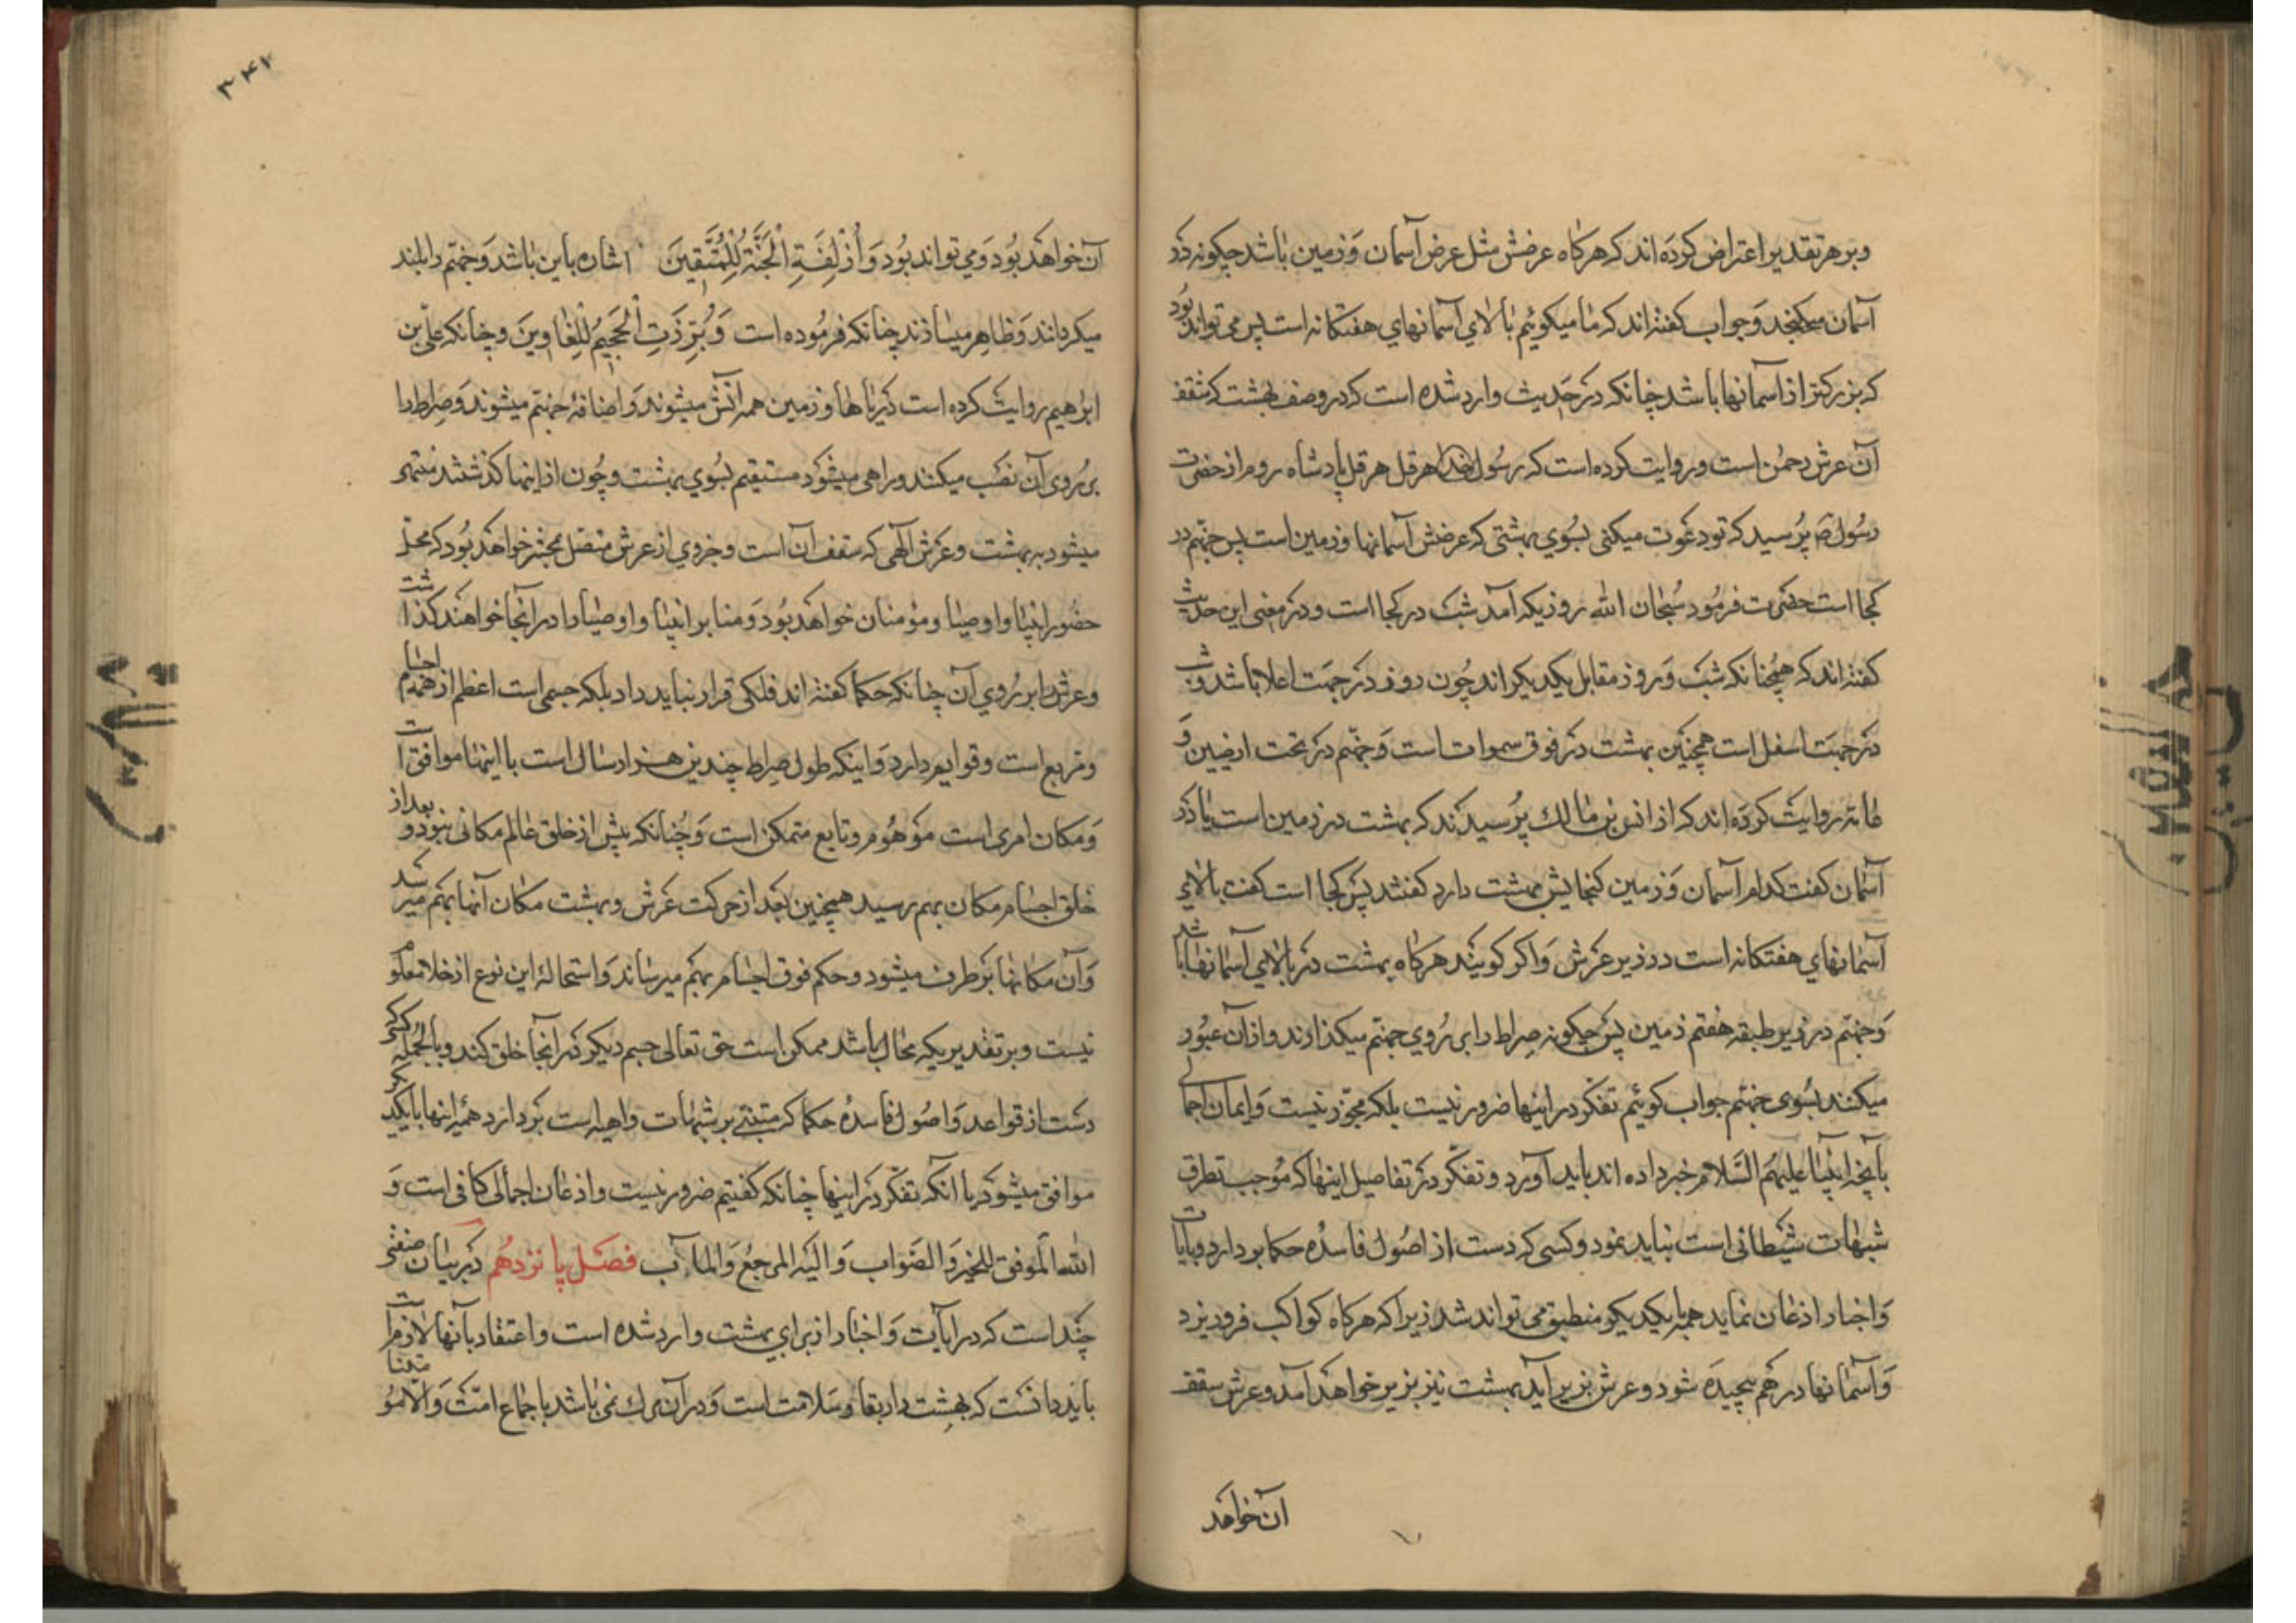 وبر هر تقدیر اعتراض کرده اند که هرکاه عرضش مثل عرض آسمان و زمین باشد چکونه در
آسمان میکنجد و جواب کفته اند که ما میکوئیم بالای آسمانهای هفتکانه است پس می تواند بود
که بزرکتر از آسمانها باشد چنانکه در حدیث وارد شده است که در وصف بهشت که سقف
آن عرش رحمن است و روایت کرده است که رسول هرقل پادشاه روم از حضرت
رسول ص پرسید که تو دعوت میکنی بسوی بهشتی که عرضش آسمانها و زمین است پس جهنم در
کجا است حضرت فرمود سبحان الله روزیکه آمد شب در کجا است و در معنی این حدیث
کفته اند که همچنانکه شب و روز مقابل یکدیکر اند چون روز در جهت اعلا باشد و شب
در جهت اسفل است همچنین بهشت در فوق سموات است و جهنم در تحت ارضین و
عامه روایت کرده اند که از انس بن مالک پرسیدند که بهشت در زمین است یا در
آسمان کفت کدام آسمان و زمین کنجایش بهشت دارد کفتند پس کجا است کفت بالای
آسمانهای هفتکانه است در زیر عرش و اکر کویند هرکاه بهشت در بالای آسمانها باشد
و جهنم در زیر طبقه هفتم زمین پس چکونه صراط را بر روی جهنم میکذارند و از آن عبور
میکنند بسوی جهنم جواب کوئیم تفکر در اینها ضرور نیست بلکه مجوز نیست و ایمان اجمالی
بآنچه انبیا علیهم السلام خبر داده اند باید آورد و تفکر در تفاصیل اینها که موجب تطرق
شبهات شیطانی است نباید نمود و کسی که دست از اصول فاسده حکما بردارد و بآیات
و اخبار اذعان نماید همه بایکدیکر منطبق می تواند شد زیرا که هرکاه کواکب فرو ریزد
و آسمانها در هم پیچیده شود و عرش بزیر آید بهشت نیز بزیر خواهد آمد و عرش سقف
آن خواهد
۳۴۲
آن خواهد بود و می تواند بود وَأُزْلِفَتِ الْجَنَّةُ لِلْمُتَّقِينَ اشاره باین باشد و جهنم را بلند
میکردانند و ظاهر میسازند چنانکه فرموده است وَبُرِّزَتِ الْجَحِيمُ لِلْغَاوِينَ و چنانکه علی بن
ابرهیم روایت کرده است دریاها و زمین همه آتش میشوند و اضافه جهنم میشوند و صراط را
بر روی آن نصب میکنند و راهی میشود مستقیم بسوی بهشت و چون از اینها کذشتند منتهی
میشود به بهشت و عرش الهی که سقف آن است و جزوی از عرش متصل بجنه خواهد بود که محل
حضور انبیا و اوصیا و مؤمنان خواهد بود و منابر انبیا و اوصیا را در آنجا خواهند کذاشت
و عرش را بر روی آن چنانکه حکما کفته اند فلکی قرار نباید داد بلکه جسمی است اعظم از همه اجسام
و مربع است و قوایم دارد و اینکه طول صراط چندین هزار سال است با اینها موافق است
و مکان امری است موهوم و تابع متمکن است و چنانکه پیش از خلق عالم مکانی نبود و بعد از
خلق اجسام مکان بهم رسید همچنین بعد از حرکت عرش و بهشت مکان آنها بهم میرسد
و آن مکانها بر طرف میشود و حکم فوق اجسام بهم میرساند و استحاله این نوع از خلا معلوم
نیست و بر تقدیریکه محال باشد ممکن است حق تعالی جسم دیکر در آنجا خلق کند و بالجمله کسی که
دست از قواعد و اصول فاسده حکما که مبتنی بر شبهات واهیه است بردارد همه اینها بایکدیکر
موافق میشود با آنکه تفکر در اینها چنانکه کفتیم ضرور نیست و اذعان اجمالی کافی است و
الله الموفق للخیر والصواب والیه المرجع والمآب فصل پانزدهم در بیان صفتی
چند است که در آیات و اخبار از برای بهشت وارد شده است و اعتقاد بآنها لازم است
باید دانست که بهشت دار بقا و سلامت است و در آن مرک نمی باشد باجماع امت و الا